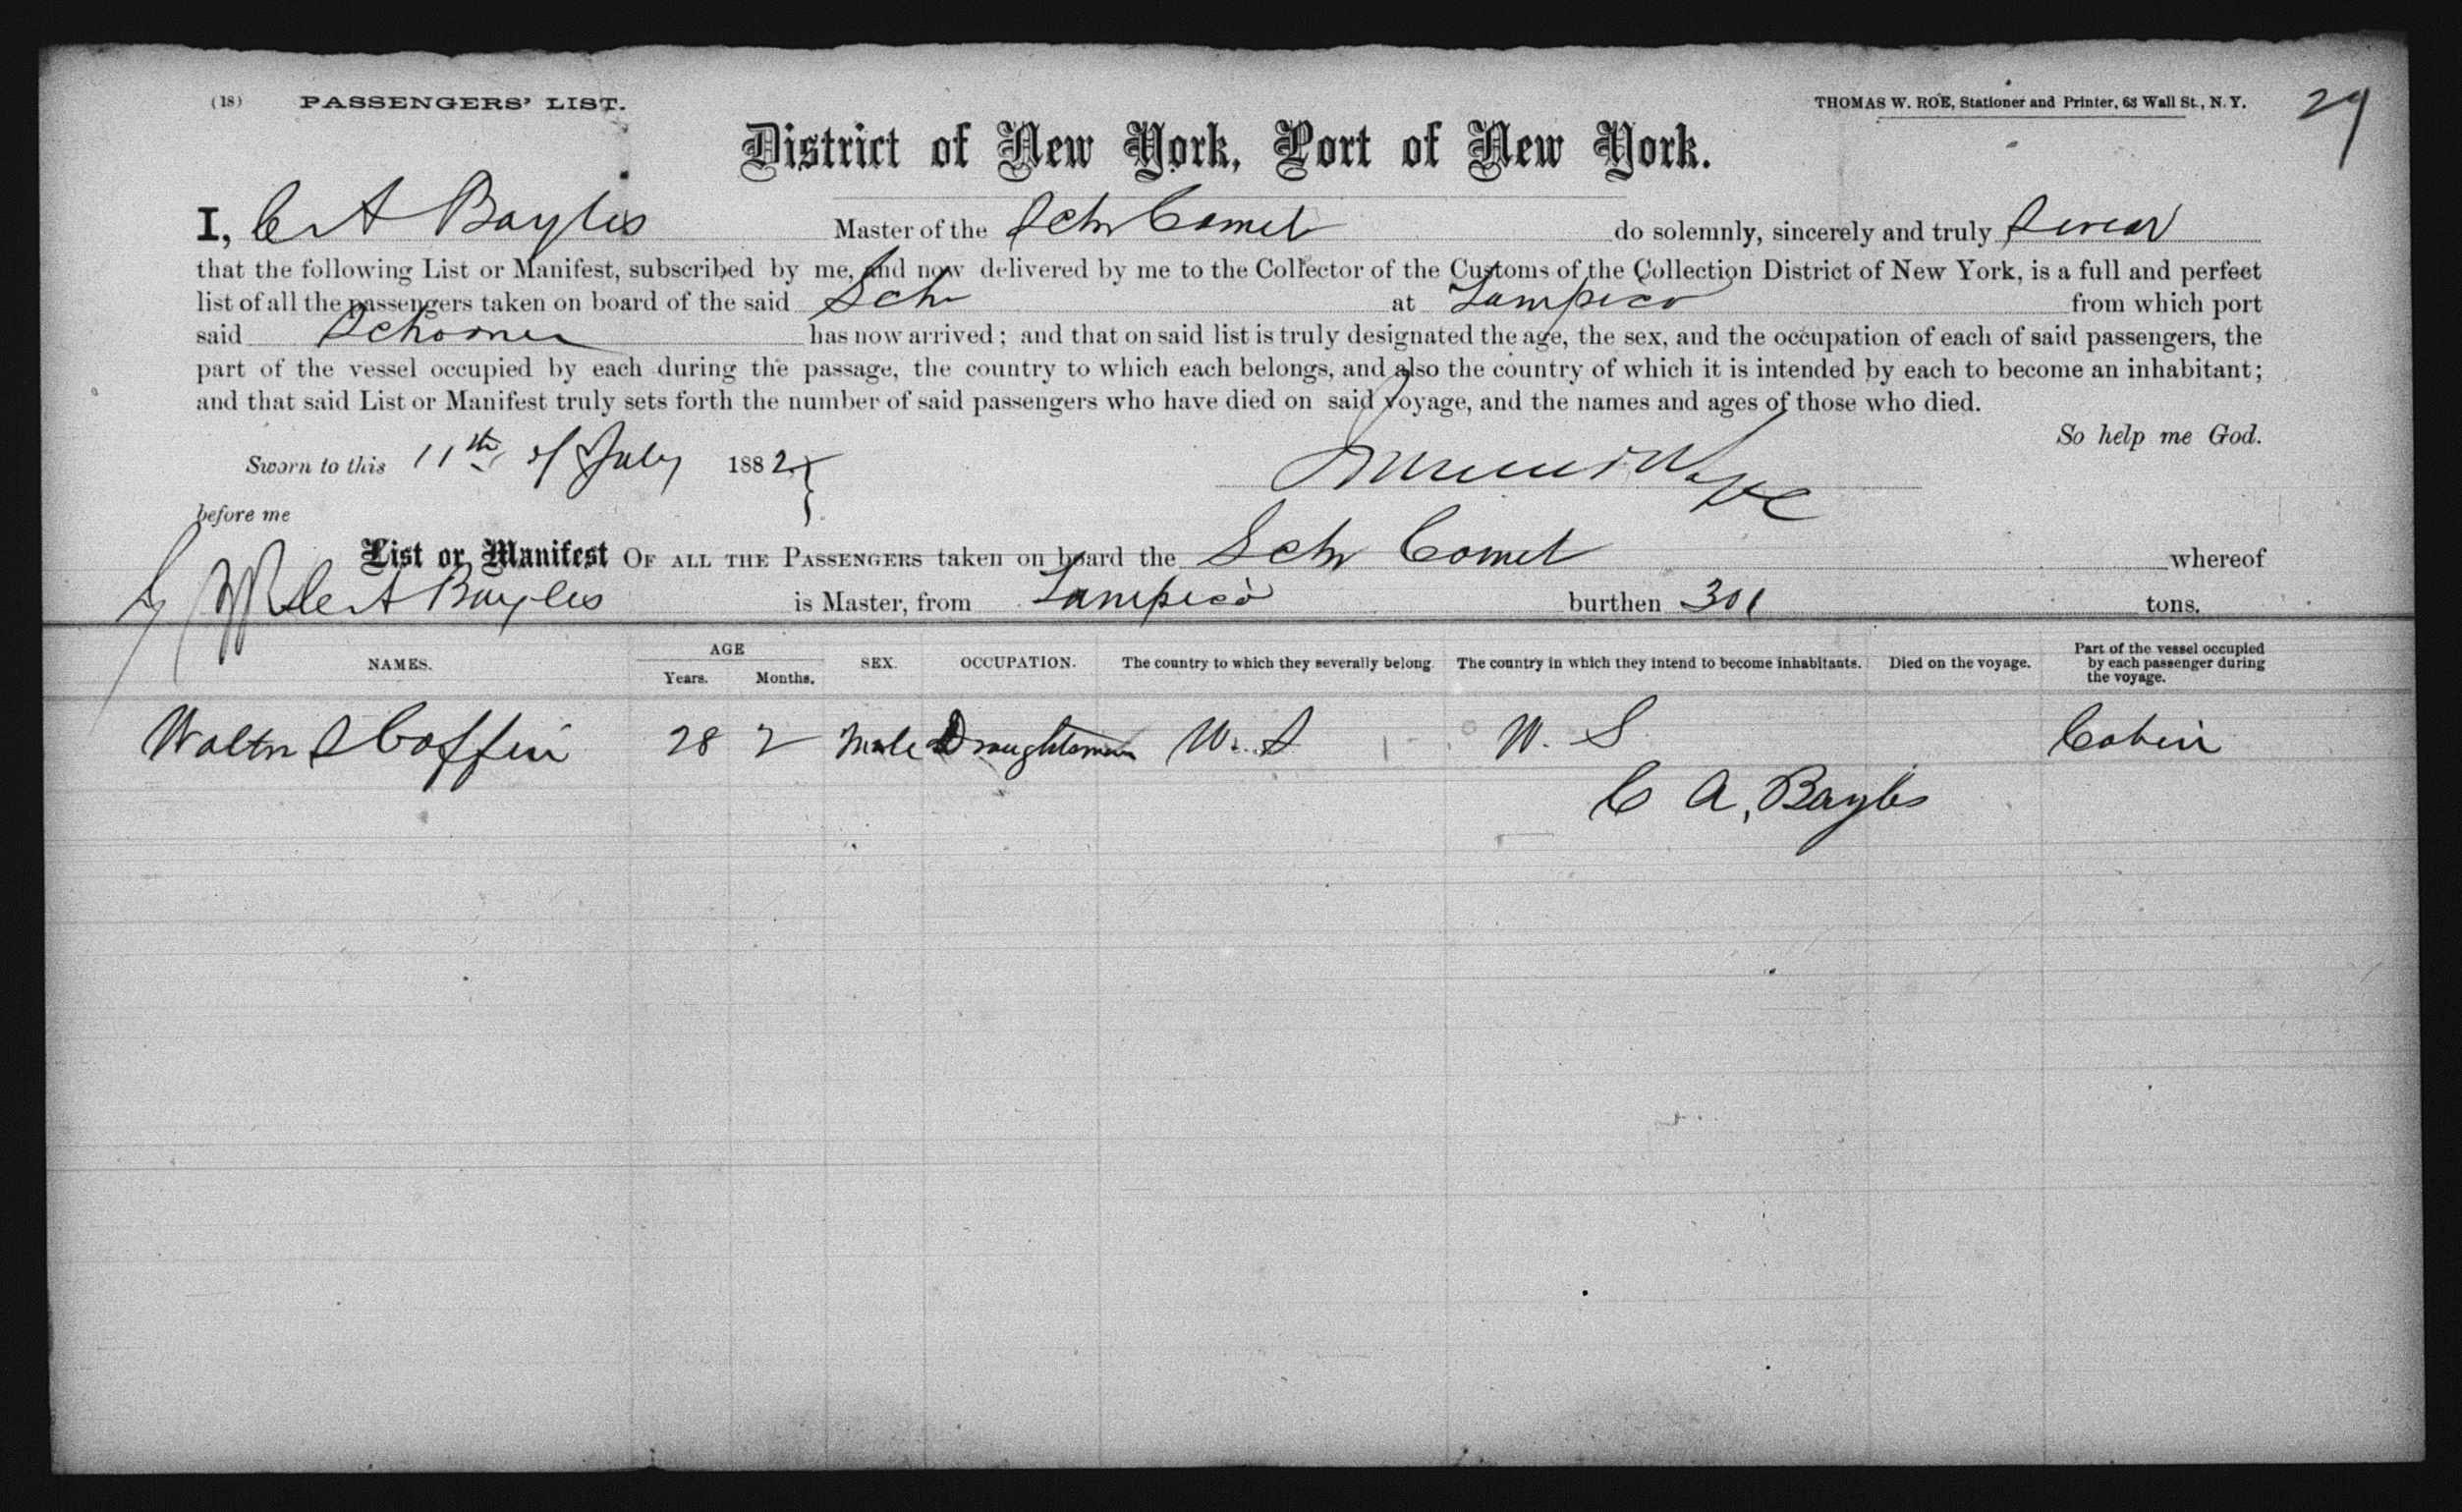 (18) PASSENGERS' LIST.
THOMAS W. ROE, Stationer and Printer, 63 Wall St., N. Y.
29
District of New York, Port of New York.
I, C A Bayles Master of the Schr Comet do solemnly, sincerely and truly swear
that the following List or Manifest, subscribed by me, and now delivered by me to the Collector of the Customs of the Collection District of New York, is a full and perfect
list of all the passengers taken on board of the said Schr at Tampico from which port
said Schooner has now arrived; and that on said list is truly designated the age, the sex, and the occupation of each of said passengers, the
part of the vessel occupied by each during the passage, the country to which each belongs, and also the country of which it is intended by each to become an inhabitant;
and that said List or Manifest truly sets forth the number of said passengers who have died on said voyage, and the names and ages of those who died.
So help me God.
Sworn to this 11th of July 1882
before me
List or Manifest OF ALL THE PASSENGERS taken on board the Schr Comet whereof
C A Bayles is Master, from Tampico burthen 301 tons.
NAMES. AGE Years. Months. SEX. OCCUPATION. The country to which they severally belong. The country in which they intend to become inhabitants. Died on the voyage. Part of the vessel occupied by each passenger during the voyage.
Walter S Coffin 28 2 Male Draughtsman U. S U. S Cabin
C A, Bayles